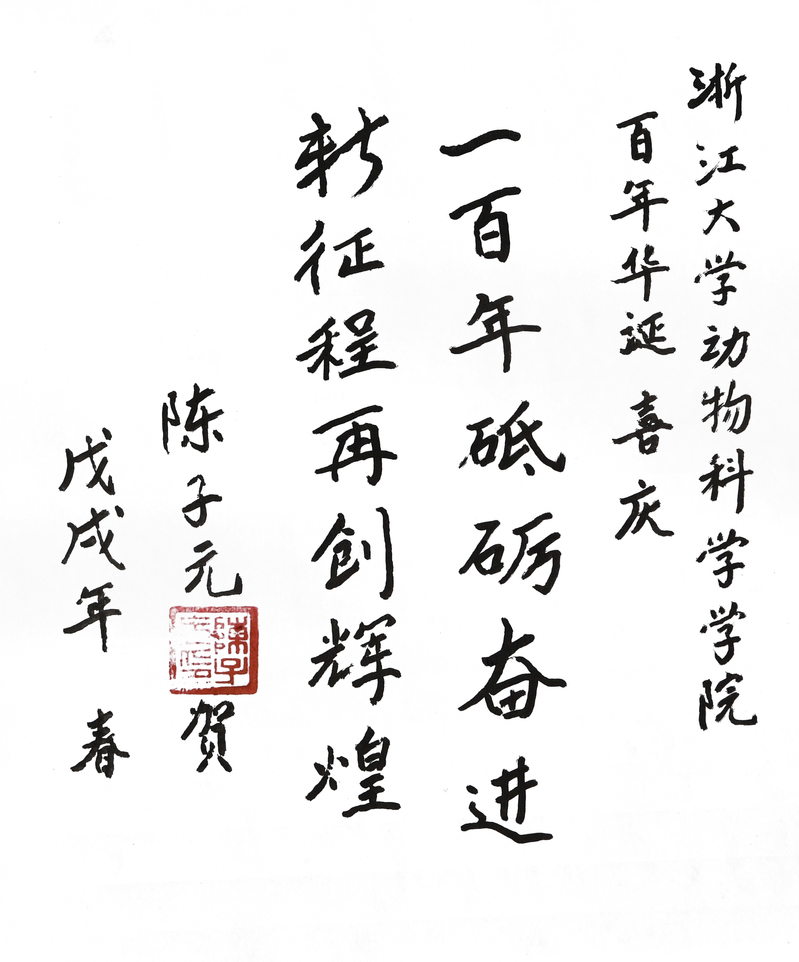 浙江大学动物科学学院
百年华诞 喜庆
一百年砥砺奋进
新征程再创辉煌
陈子元 賀
戊戌年 春